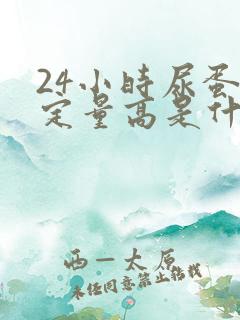 24小时尿蛋
定量高是什
西一太原
未经同意禁止搭载